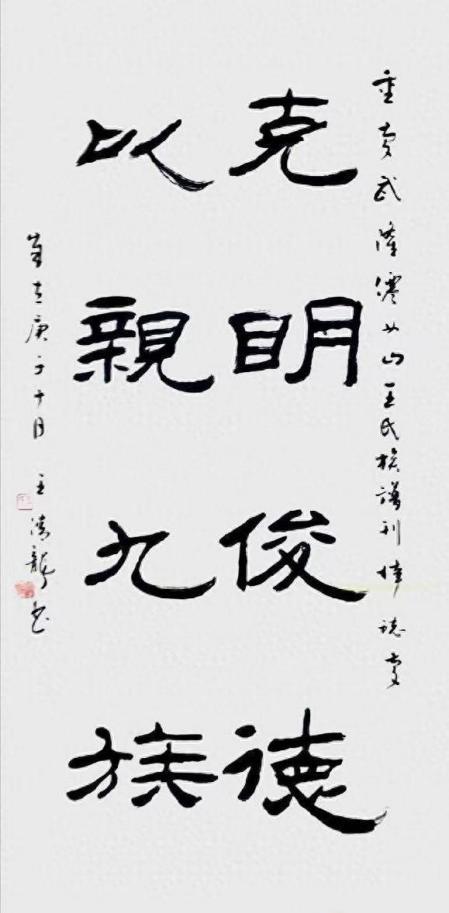 重慶武隆僊女山王氏族譜刊梓誌慶
克明俊德
以親九族
歲在庚子十月 王龍書